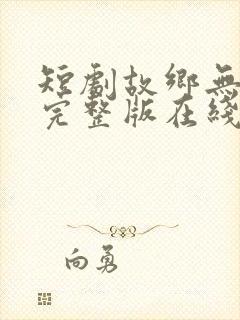 短劇故鄉無
完整版在綫
向勇